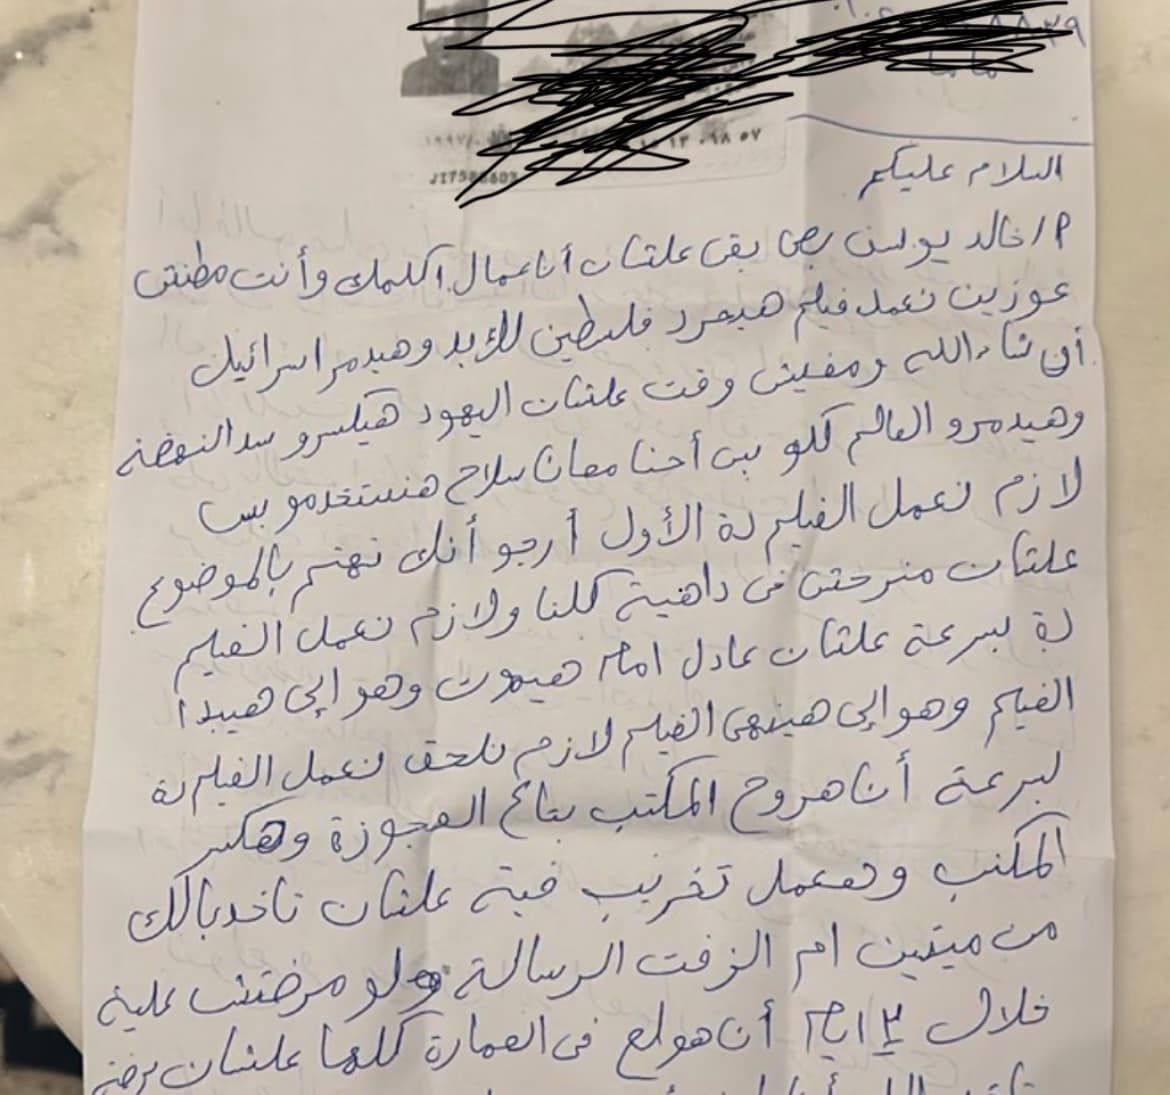 السلام عليكم
أ/ خالد يوسف بص بقى علشان أنا عمال اكلمك وأنت مطنش
عوزين نعمل فيلم هيحرر فلسطين للابد وهيدمر اسرائيل
أن شاء الله ومفيش وقت علشان اليهود هيكسرو سد النهضة
وهيدمرو العالم كلو بس أحنا معانا سلاح هنستخدمو بس
لازم نعمل الفيلم دة الأول أرجو أنك تهتم بالموضوع
علشان منرحش فى داهية كلنا ولازم نعمل الفيلم
دة بسرعة علشان عادل امام هيموت وهو الى هيبدا
الفيلم وهو الى هينهى الفيلم لازم نلحق نعمل الفيلم دة
بسرعة أنا هروح المكتب بتاع العجوزة وهكسر
المكتب وهعمل تخريب فية علشان تاخد بالك
من ميتين ام الزفت الرسالة ولو مرضتش علية
خلال ٣ ايام أنا هولع فى العمارة كلها علشان برضة